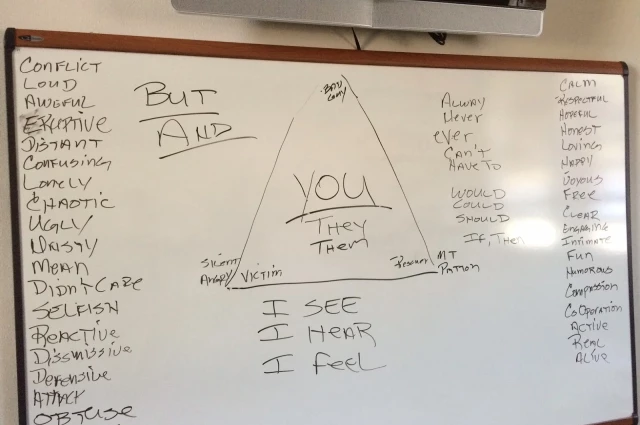 CONFLICT
LOUD
AWEFUL
ERUPTIVE
DISTANT
CONFUSING
LONELY
CHAOTIC
UGLY
NASTY
MEAN
DIDN'T CARE
SELFISH
REACTIVE
DISSMISSIVE
DEFENSIVE
ATTACK
OBTUSE
BUT
AND
BAD
GUY
YOU
THEY
THEM
SILENT
ANGRY
VICTIM
RESCUER
MT
I SEE
I HEAR
I FEEL
ALWAY
NEVER
EVER
CAN'T
HAVE TO
WOULD
COULD
SHOULD
IF, THEN
CALM
RESPECTFUL
HOPEFUL
HONEST
LOVING
HAPPY
JOYOUS
FREE
CLEAR
ENGAGING
INTIMATE
FUN
HUMOROUS
COMPASSION
COOPERATION
ACTIVE
REAL
ALIVE